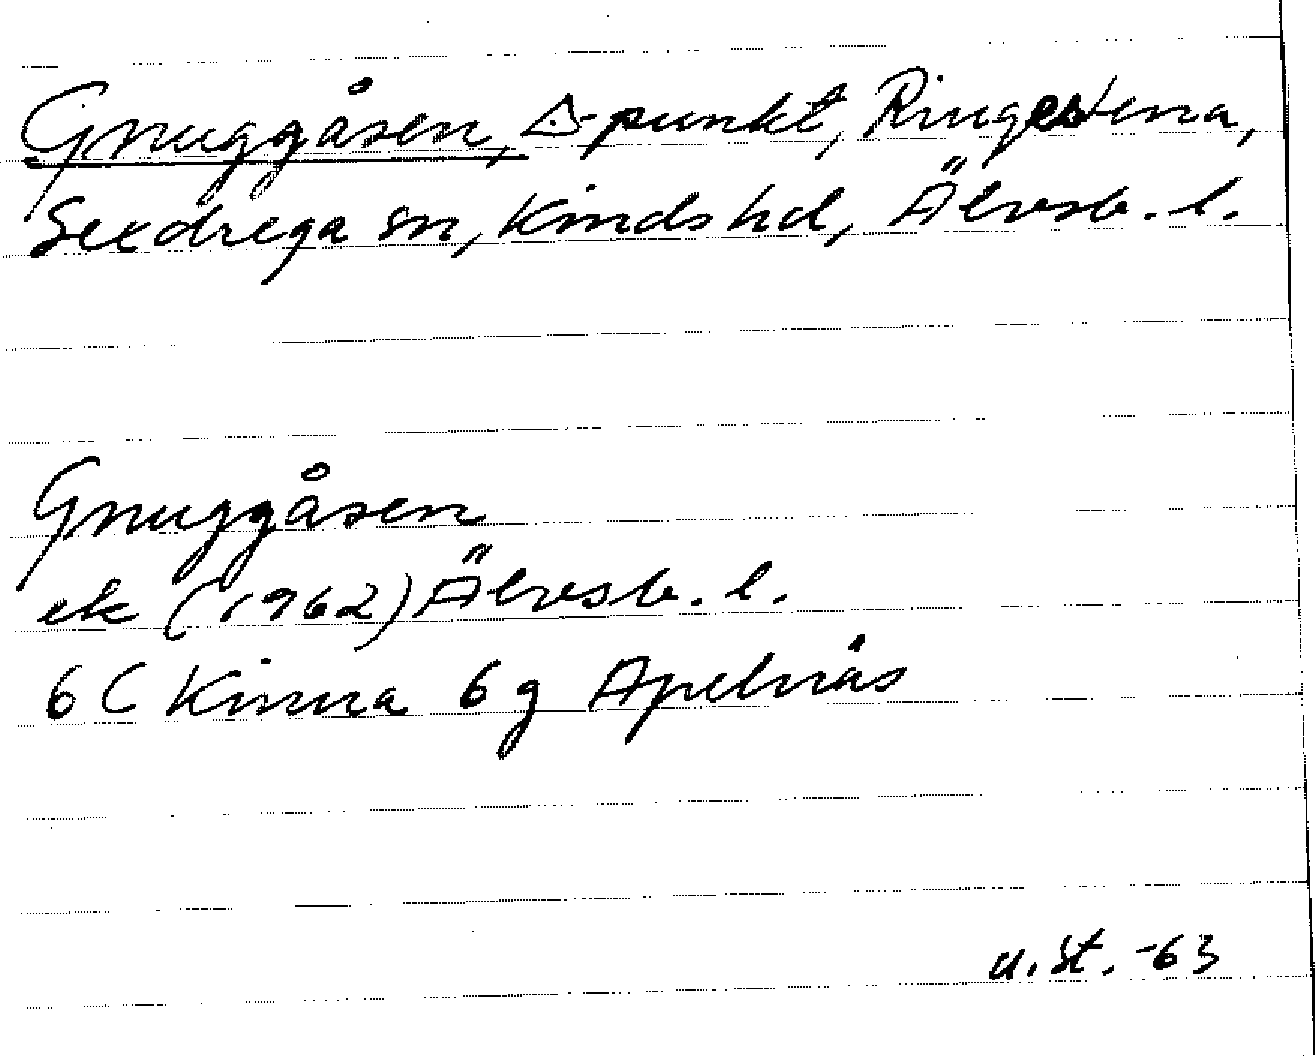 Gnuggåsen, △-punkt, Ringestena,
Sexdrega sn, Kinds hd, Älvsb. l.
Gnuggåsen
ek (1962) Älvsb. l.
6 C Kinna 6 g Apelnäs
u. st. -63